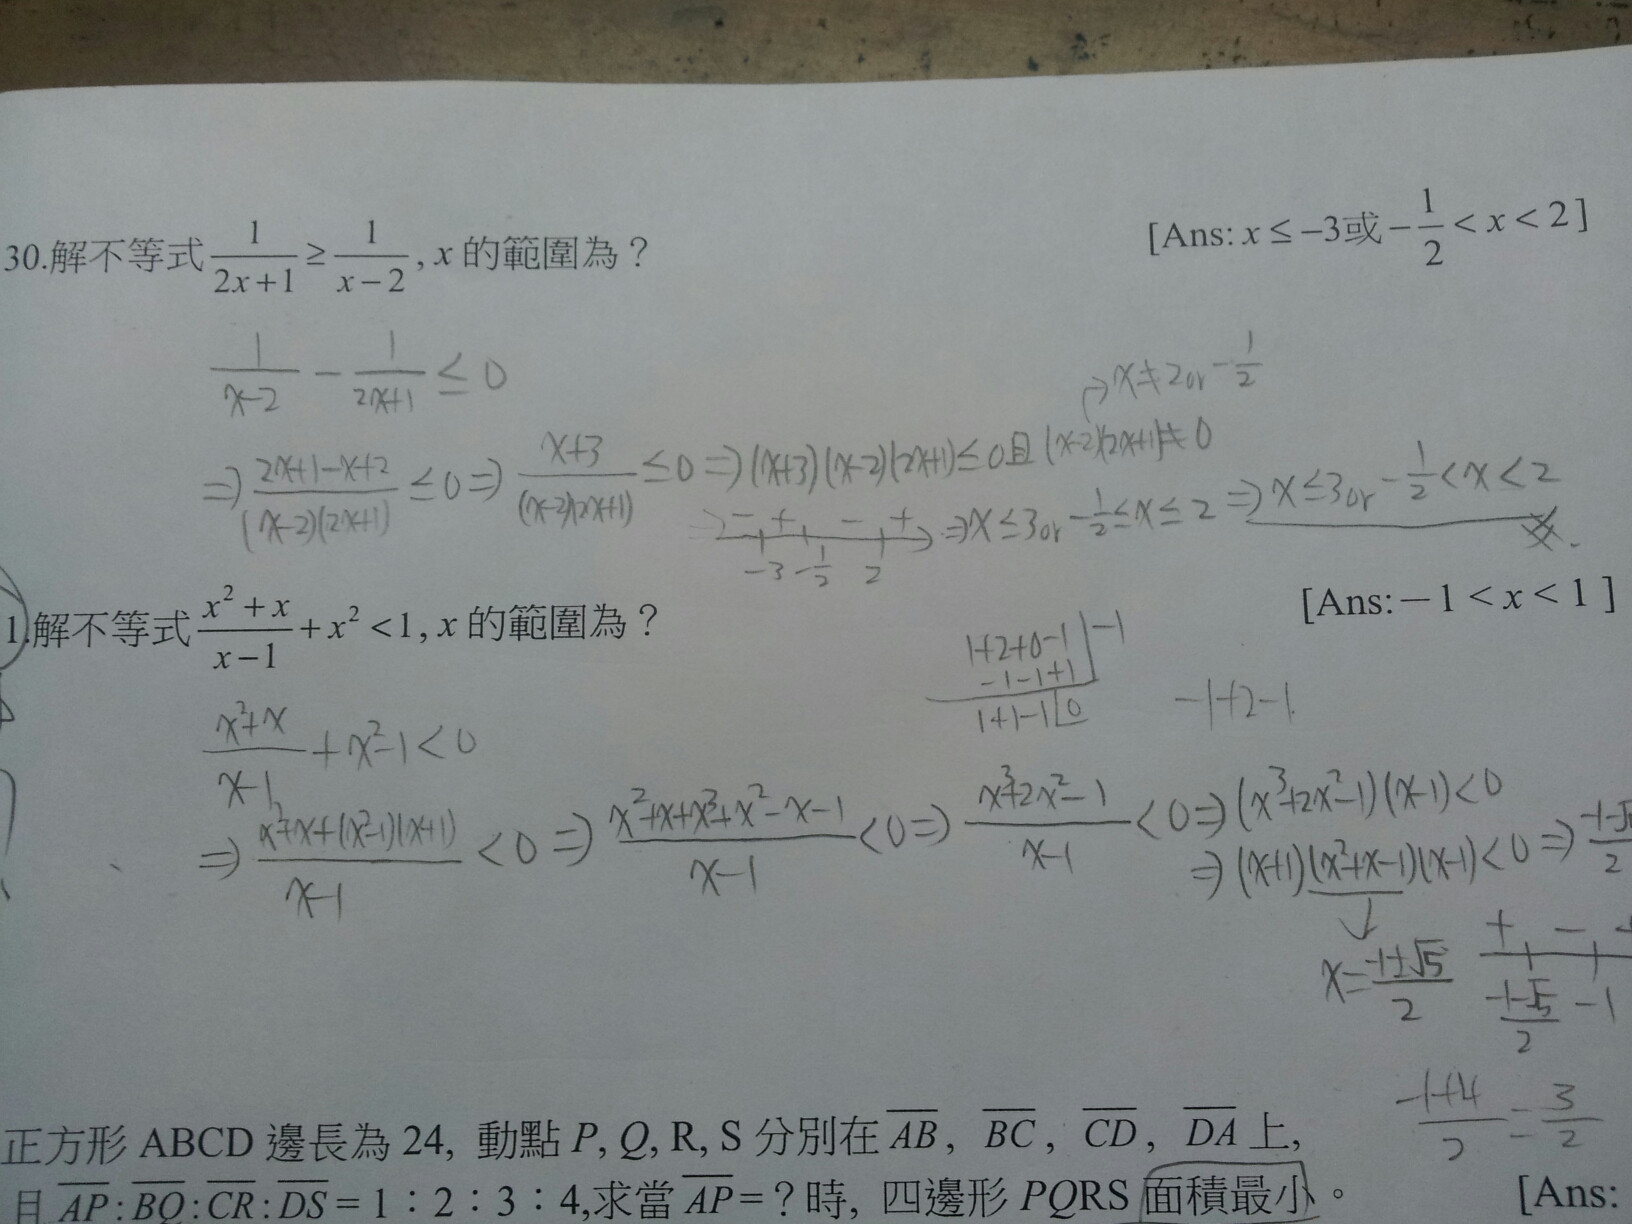 30.解不等式 1/(2x+1) ≥ 1/(x−2) , x 的範圍為？ [Ans: x ≤ −3或 −1/2 < x < 2 ]
1/(x-2) - 1/(2x+1) ≤ 0
⇒ x≠2 or -1/2
⇒ (2x+1-x+2)/((x-2)(2x+1)) ≤ 0 ⇒ (x+3)/((x-2)(2x+1)) ≤ 0 ⇒ (x+3)(x-2)(2x+1) ≤ 0 且 (x-2)(2x+1) ≠ 0
- + - + ⇒ x ≤ 3 or -1/2 ≤ x ≤ 2 ⇒ x ≤ 3 or -1/2 < x < 2
-3 -1/2 2
1.解不等式 (x²+x)/(x−1) + x² < 1 , x 的範圍為？ [Ans: −1 < x < 1 ]
1+2+0-1 | -1
-1-1+1
1+1-1 | 0
-1+2-1
(x²+x)/(x-1) + x²-1 < 0
⇒ (x²+x+(x²-1)(x+1))/(x-1) < 0 ⇒ (x²+x+x³+x²-x-1)/(x-1) < 0 ⇒ (x³+2x²-1)/(x-1) < 0 ⇒ (x³+2x²-1)(x-1) < 0
⇒ (x+1)(x²+x-1)(x-1) < 0 ⇒
x = (-1±√5)/2
+ -
(-1-√5)/2 -1
(-1+4)/2 = 3/2
正方形 ABCD 邊長為 24, 動點 P, Q, R, S 分別在 AB, BC, CD, DA 上,
且 AP : BQ : CR : DS = 1：2：3：4,求當 AP =？時, 四邊形 PQRS 面積最小。 [Ans: